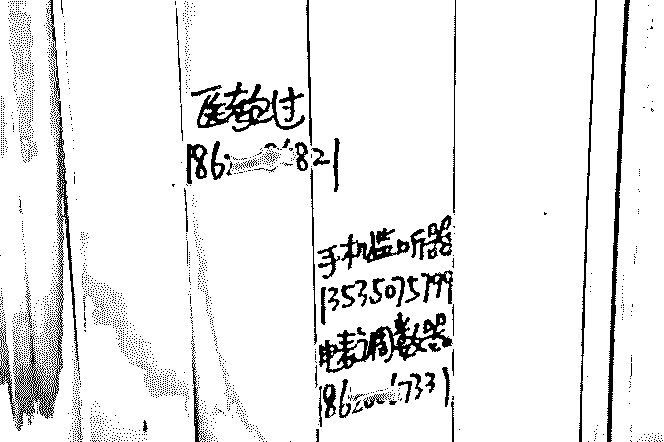 医教包过
186 821
手机监听器
13535075799
电表调数器
186 7331